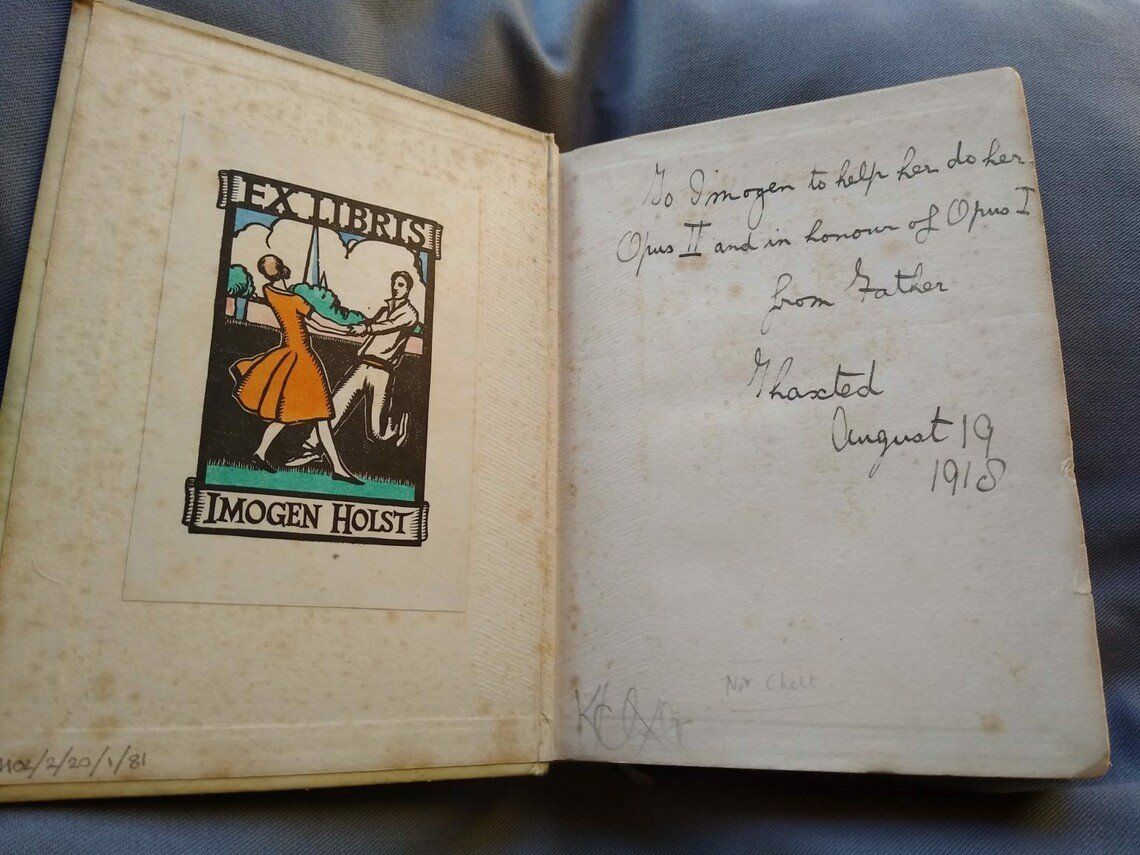 EX LIBRIS
IMOGEN HOLST
HOL/2/20/1/81
To Imogen to help her do her
Opus II and in honour of Opus I
from Father
Thaxted
August 19
1918
Not Chelt.